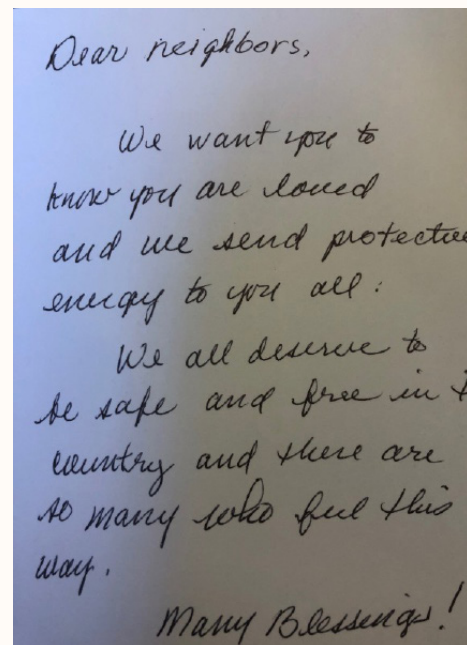 Dear neighbors,
We want you to
know you are loved
and we send protective
energy to you all.
We all deserve to
be safe and free in
country and there are
so many who feel this
way.
Many Blessings!